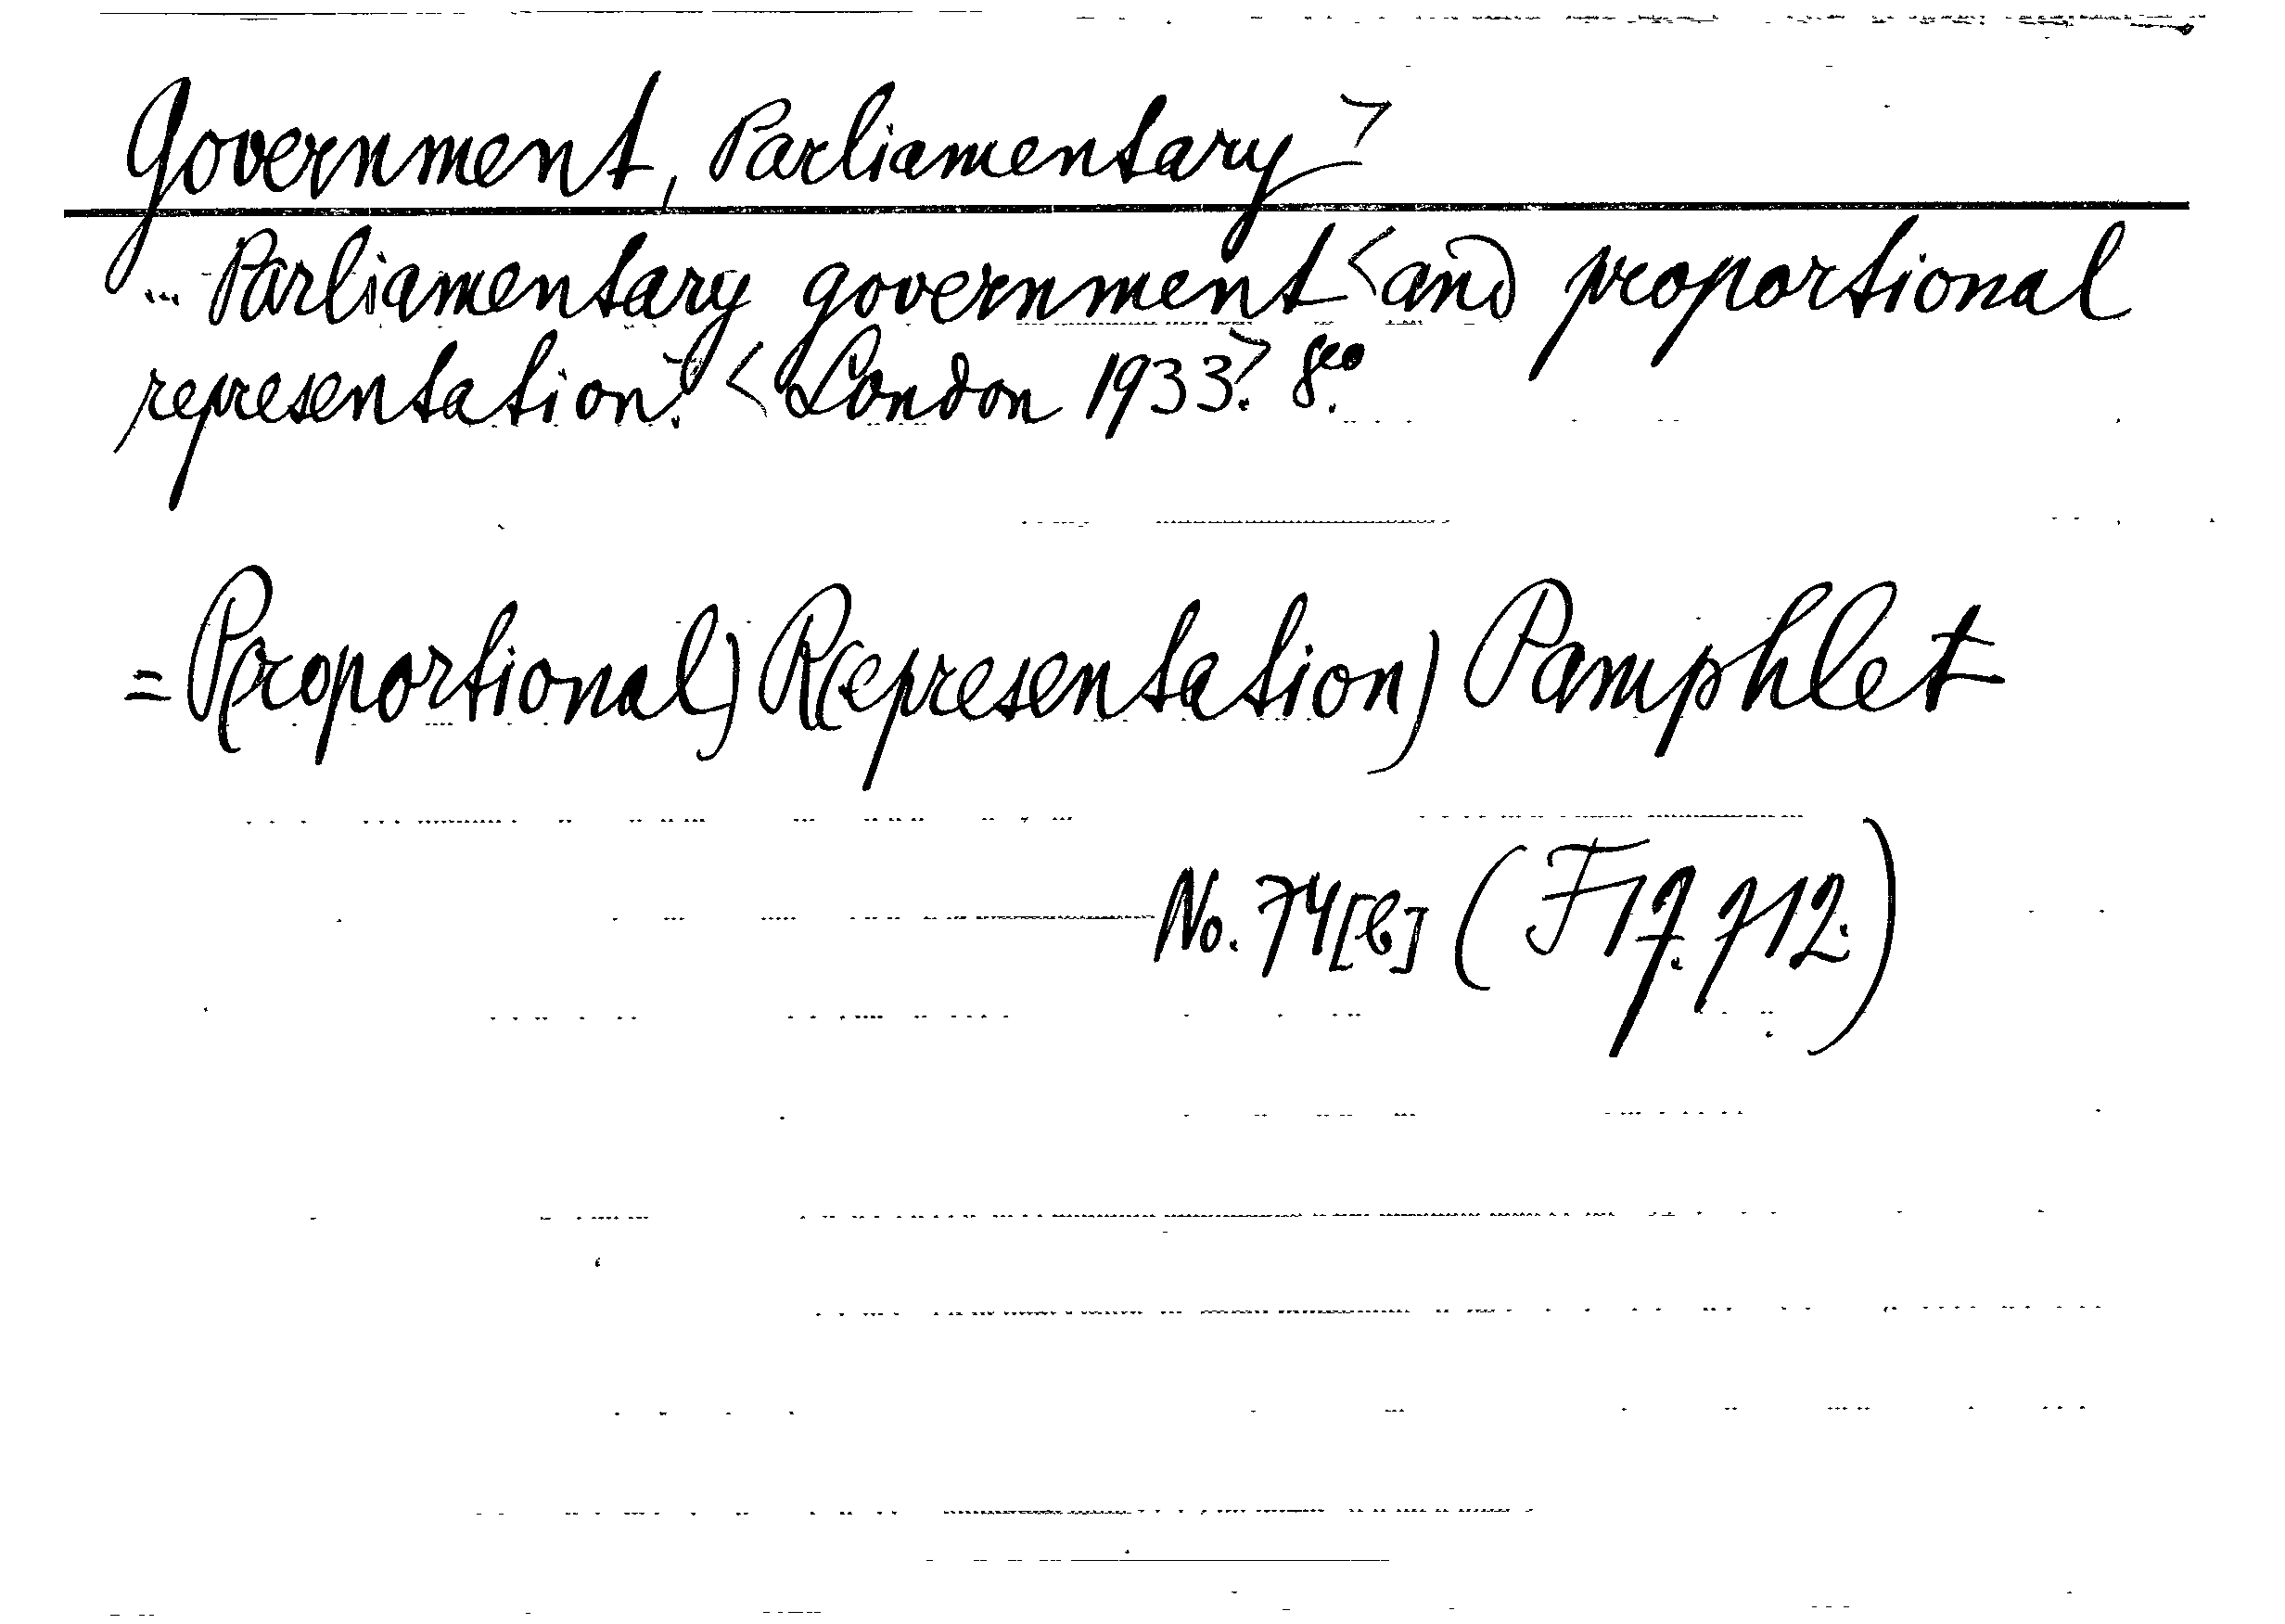 Government, Parliamentary>
... Parliamentary government <and proportional
representation.> <London 1933.> 8eo.
= P(roportional) R(epresentation) Pamphlet
No. 74[b] (F17.712.)